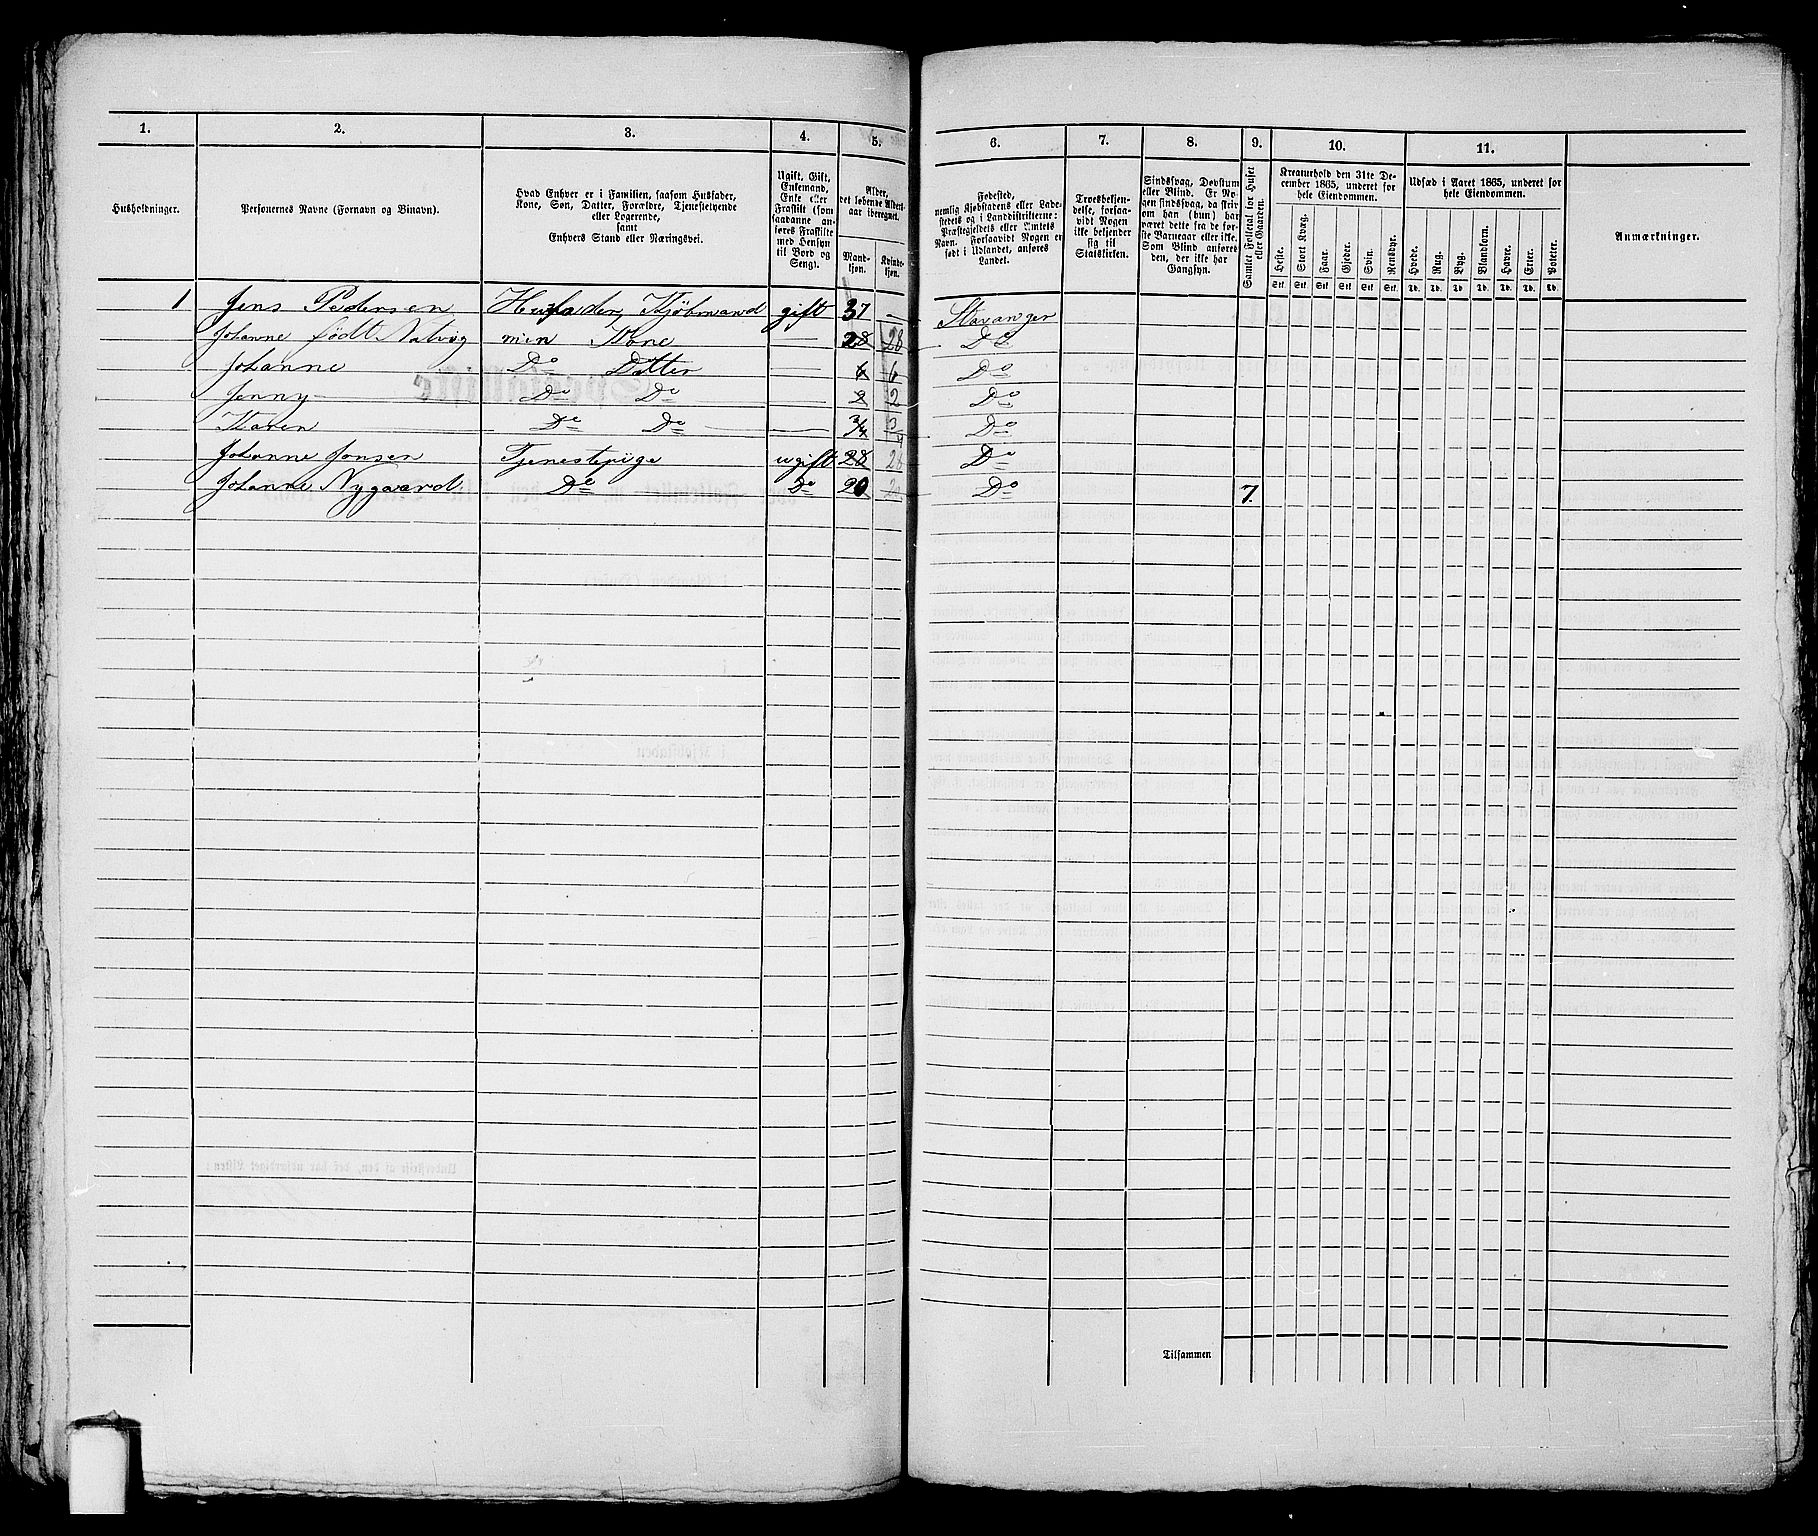 1. 2. 3. 4. 5. 6. 7. 8. 9. 10. 11.
Husholdninger.
Personernes Navne (Fornavn og Binavn).
Hvad Enhver er i Familien, saasom Husfader,
Kone, Søn, Datter, Forældre, Tjenestetyende
eller Logerende,
samt
Enhvers Stand eller Næringsvei.
Ugift, Gift,
Enkemand,
Enke eller
Fraskilt (som
saadanne an-
føres Fraskilte
med Hensyn
til Bord og
Seng).
Alder,
det løbende Alders-
aar iberegnet.
Mand-
kjøn.
Kvinde-
kjøn.
Fødested,
nemlig Kjøbstadens eller Lade-
stedets og i Landdistrikterne:
Præstegjeldets eller Amtets
Navn. Forsaavidt Nogen er
født i Udlandet, anføres
Landet.
Troesbekjen-
delse, forsaa-
vidt Nogen
ikke bekjender
sig til
Statskirken.
Sindssvag, Døvstum
eller Blind. Er No-
gen sindssvag, da skri-
ves om han (hun) har
været dette fra de før-
ste Barneaar eller ikke.
Som Blind anføres
den, der ikke har
Gangsyn.
Samlet Folketal for Huset
eller Gaarden.
Kreaturhold den 31te De-
cember 1865, underet for
hele Eiendommen.
Heste. Stort Kvæg. Faar. Gjeder. Svin. Rensdyr.
Stk. Stk. Stk. Stk. Stk. Stk.
Udsæd i Aaret 1865, underet for
hele Eiendommen.
Hvede. Rug. Byg. Blandkorn. Havre. Erter. Poteter.
Td. Td. Td. Td. Td. Td. Td.
Anmærkninger.
1 Jens Pedersen Husfader, Kjøbmand gift 37 — Stavanger
Johanne født Natvig min Kone — 28 28 Do
Johanne Do Datter — 6 6 Do
Jenny Do Do — 2 2 Do
Karen Do Do — 3/4 3/4 Do
Johanne Jonsen Tjenestepige ugift 28 28 Do
Johanne Nygaard Do Do 20 20 Do 7.
Tilsammen